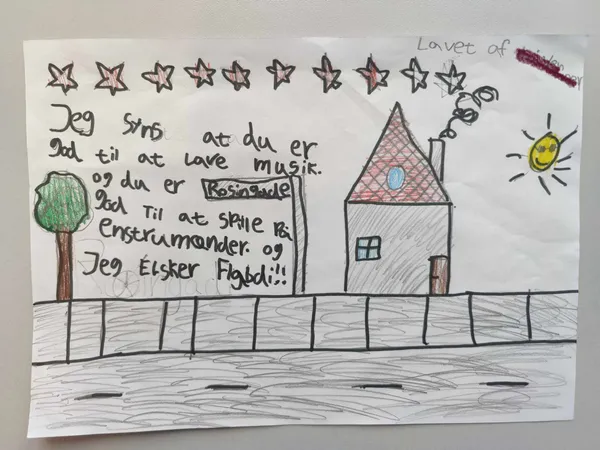 Lavet af
Jeg syns at du er
god til at lave musik.
og du er
Rosingade
god til at spille på
enstrumænder. og
Jeg Elsker Flgbdi!!